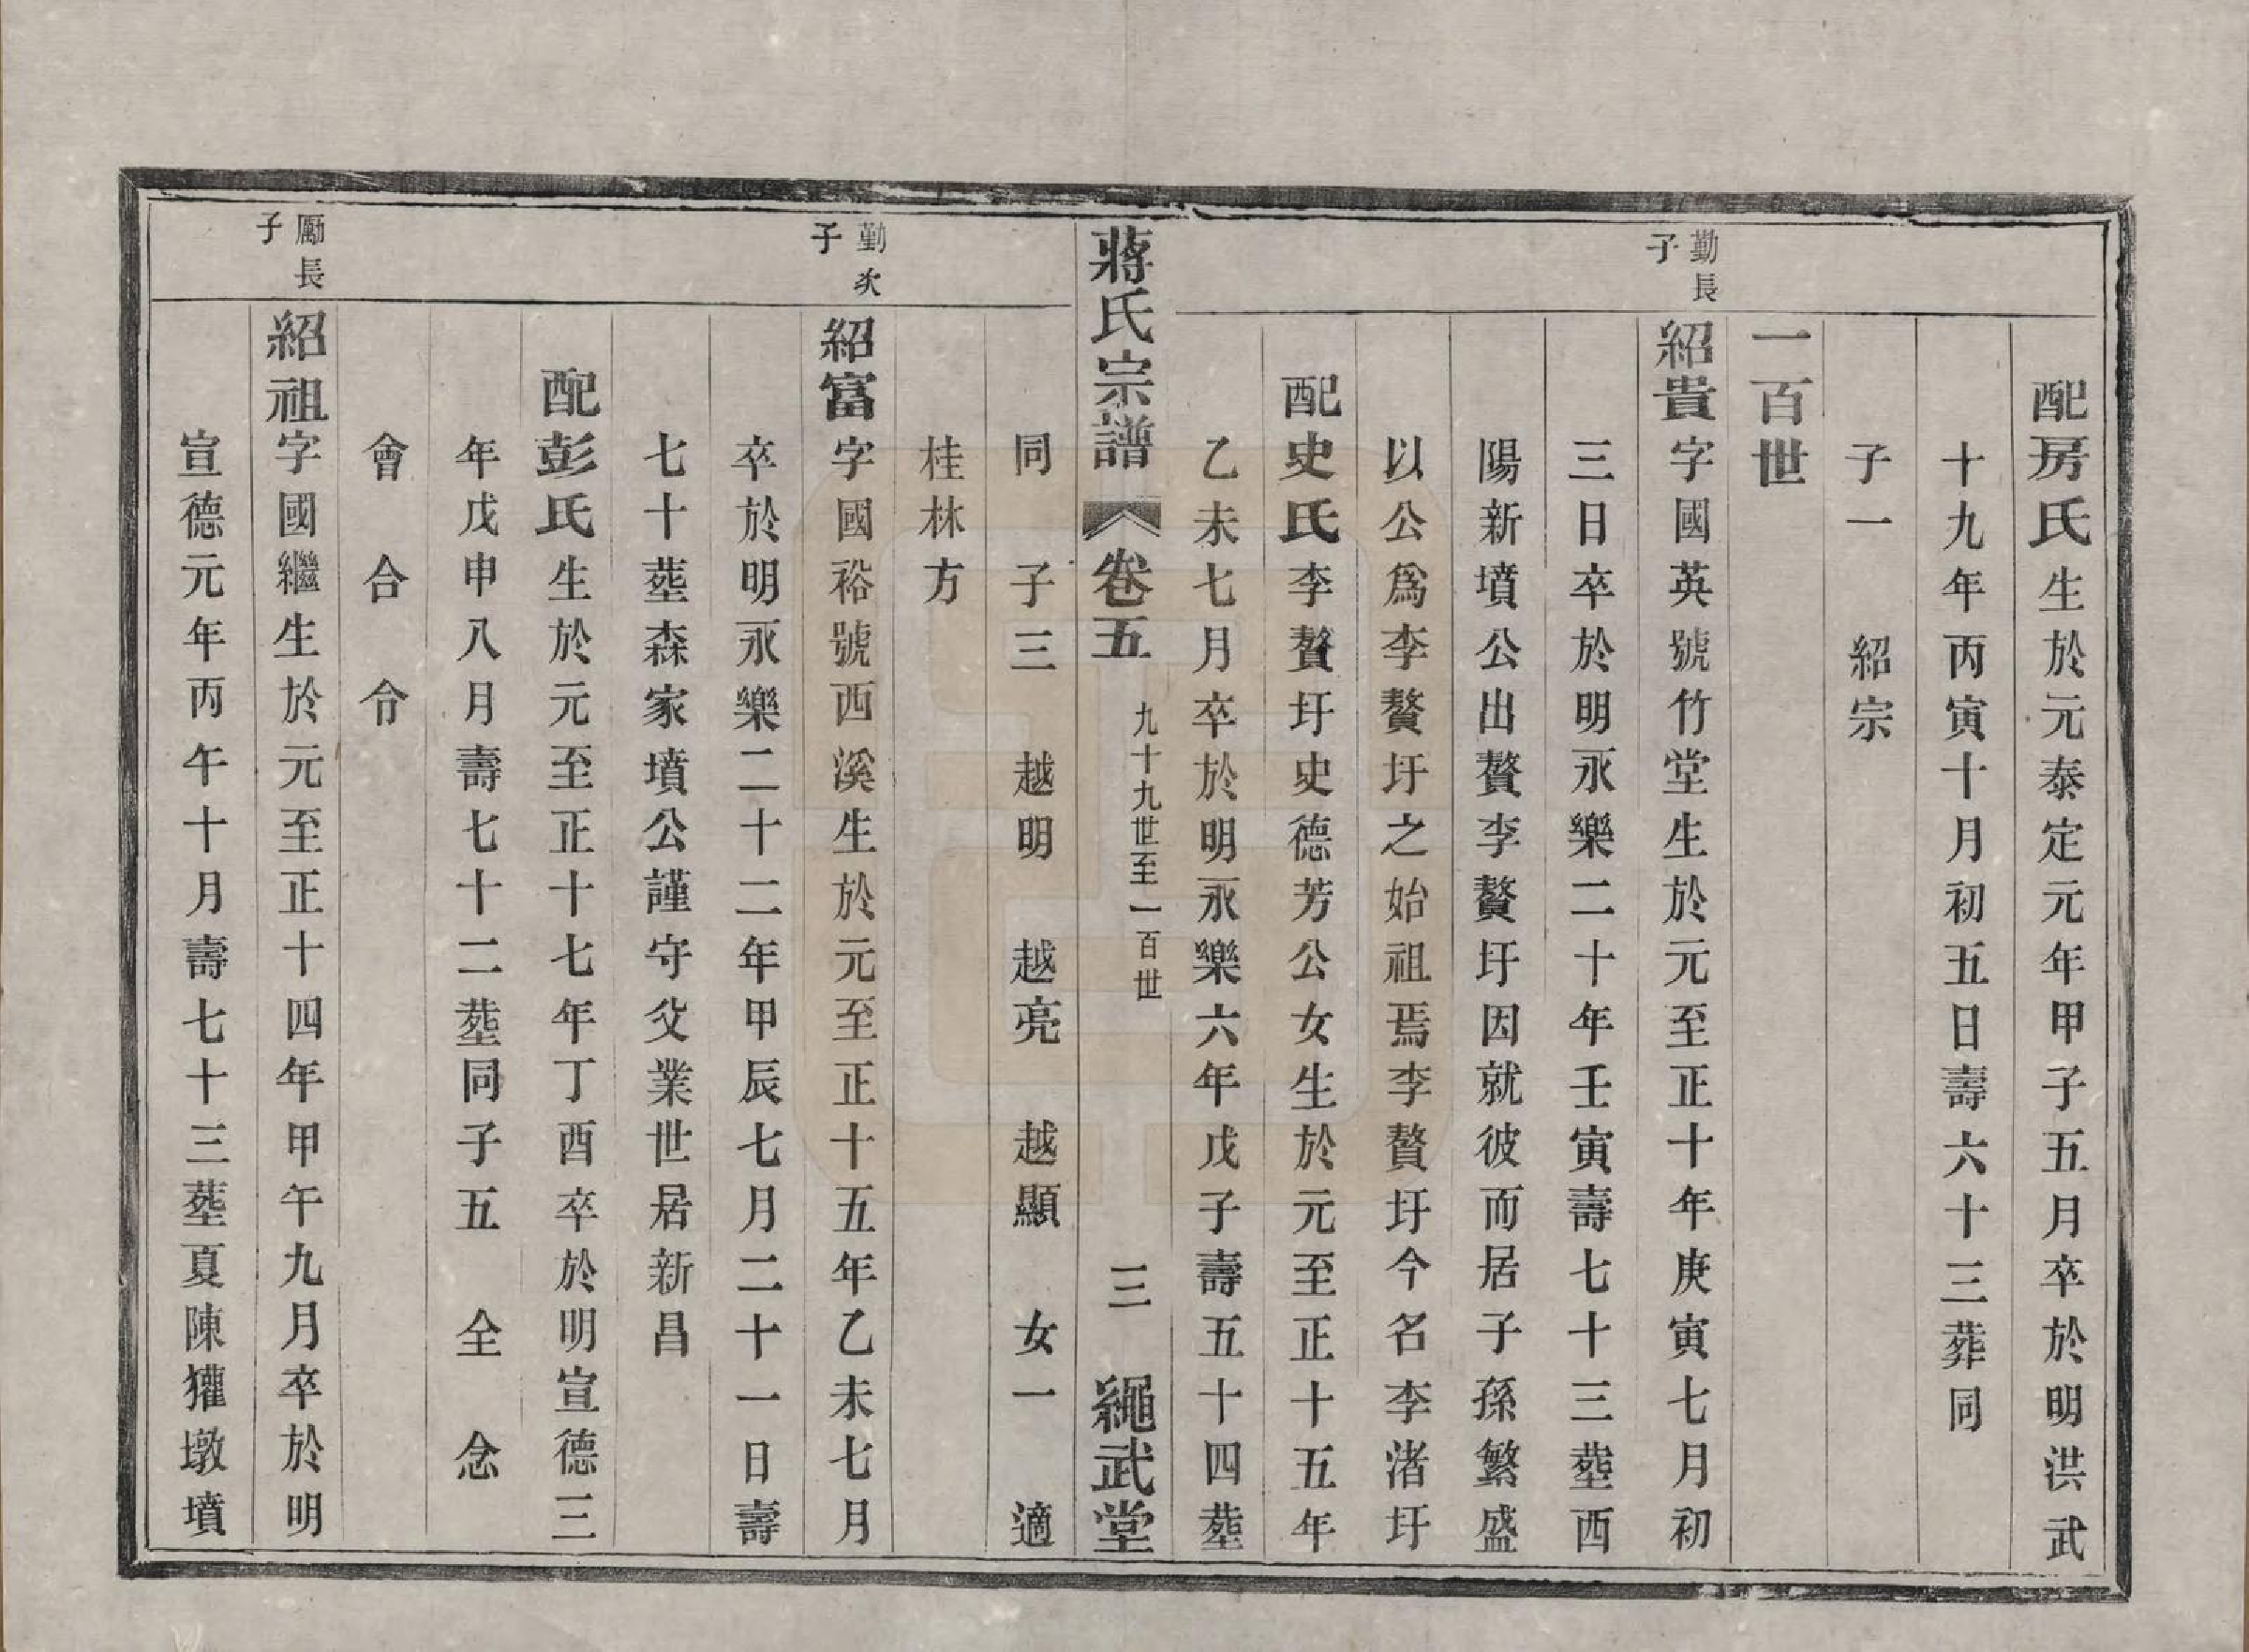 配房氏生於元泰定元年甲子五月卒於明洪武
十九年丙寅十月初五日壽六十三葬同
子一　紹宗
一百世
勤長子
紹貴字國英號竹堂生於元至正十年庚寅七月初
三日卒於明永樂二十年壬寅壽七十三塟西
陽新墳公出贅李贅圩因就彼而居子孫繁盛
以公爲李贅圩之始祖焉李贅圩今名李渚圩
配史氏李贅圩史德芳公女生於元至正十五年
乙未七月卒於明永樂六年戊子壽五十四塟
蔣氏宗譜　卷五　九十九世至一百世　三　繩武堂
同　子三　越明　越亮　越顯　女一　適
桂林方
勤次子
紹富字國裕號西溪生於元至正十五年乙未七月
卒於明永樂二十二年甲辰七月二十一日壽
七十塟森家墳公謹守父業世居新昌
配彭氏生於元至正十七年丁酉卒於明宣德三
年戊申八月壽七十二塟同子五　全　念
會　合　令
勵長子
紹祖字國繼生於元至正十四年甲午九月卒於明
宣德元年丙午十月壽七十三塟夏陳獾墩墳